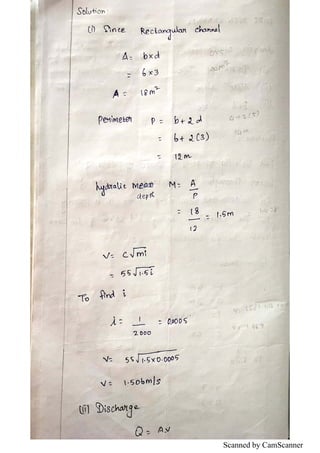 Solution
(i) Since Rectangular channel
A = b×d
= 6×3
A = 18m²
Perimeter P = b+2d
= 6+2(3)
= 12m
hydralic mean depth M = A/P
= 18/12 = 1.5m
V = C√mi
= 55√1.5i
To find i
i = 1/2000 = 0.0005
V = 55√1.5×0.0005
V = 1.506m/s
(ii) Discharge
Q = AV
Scanned by CamScanner